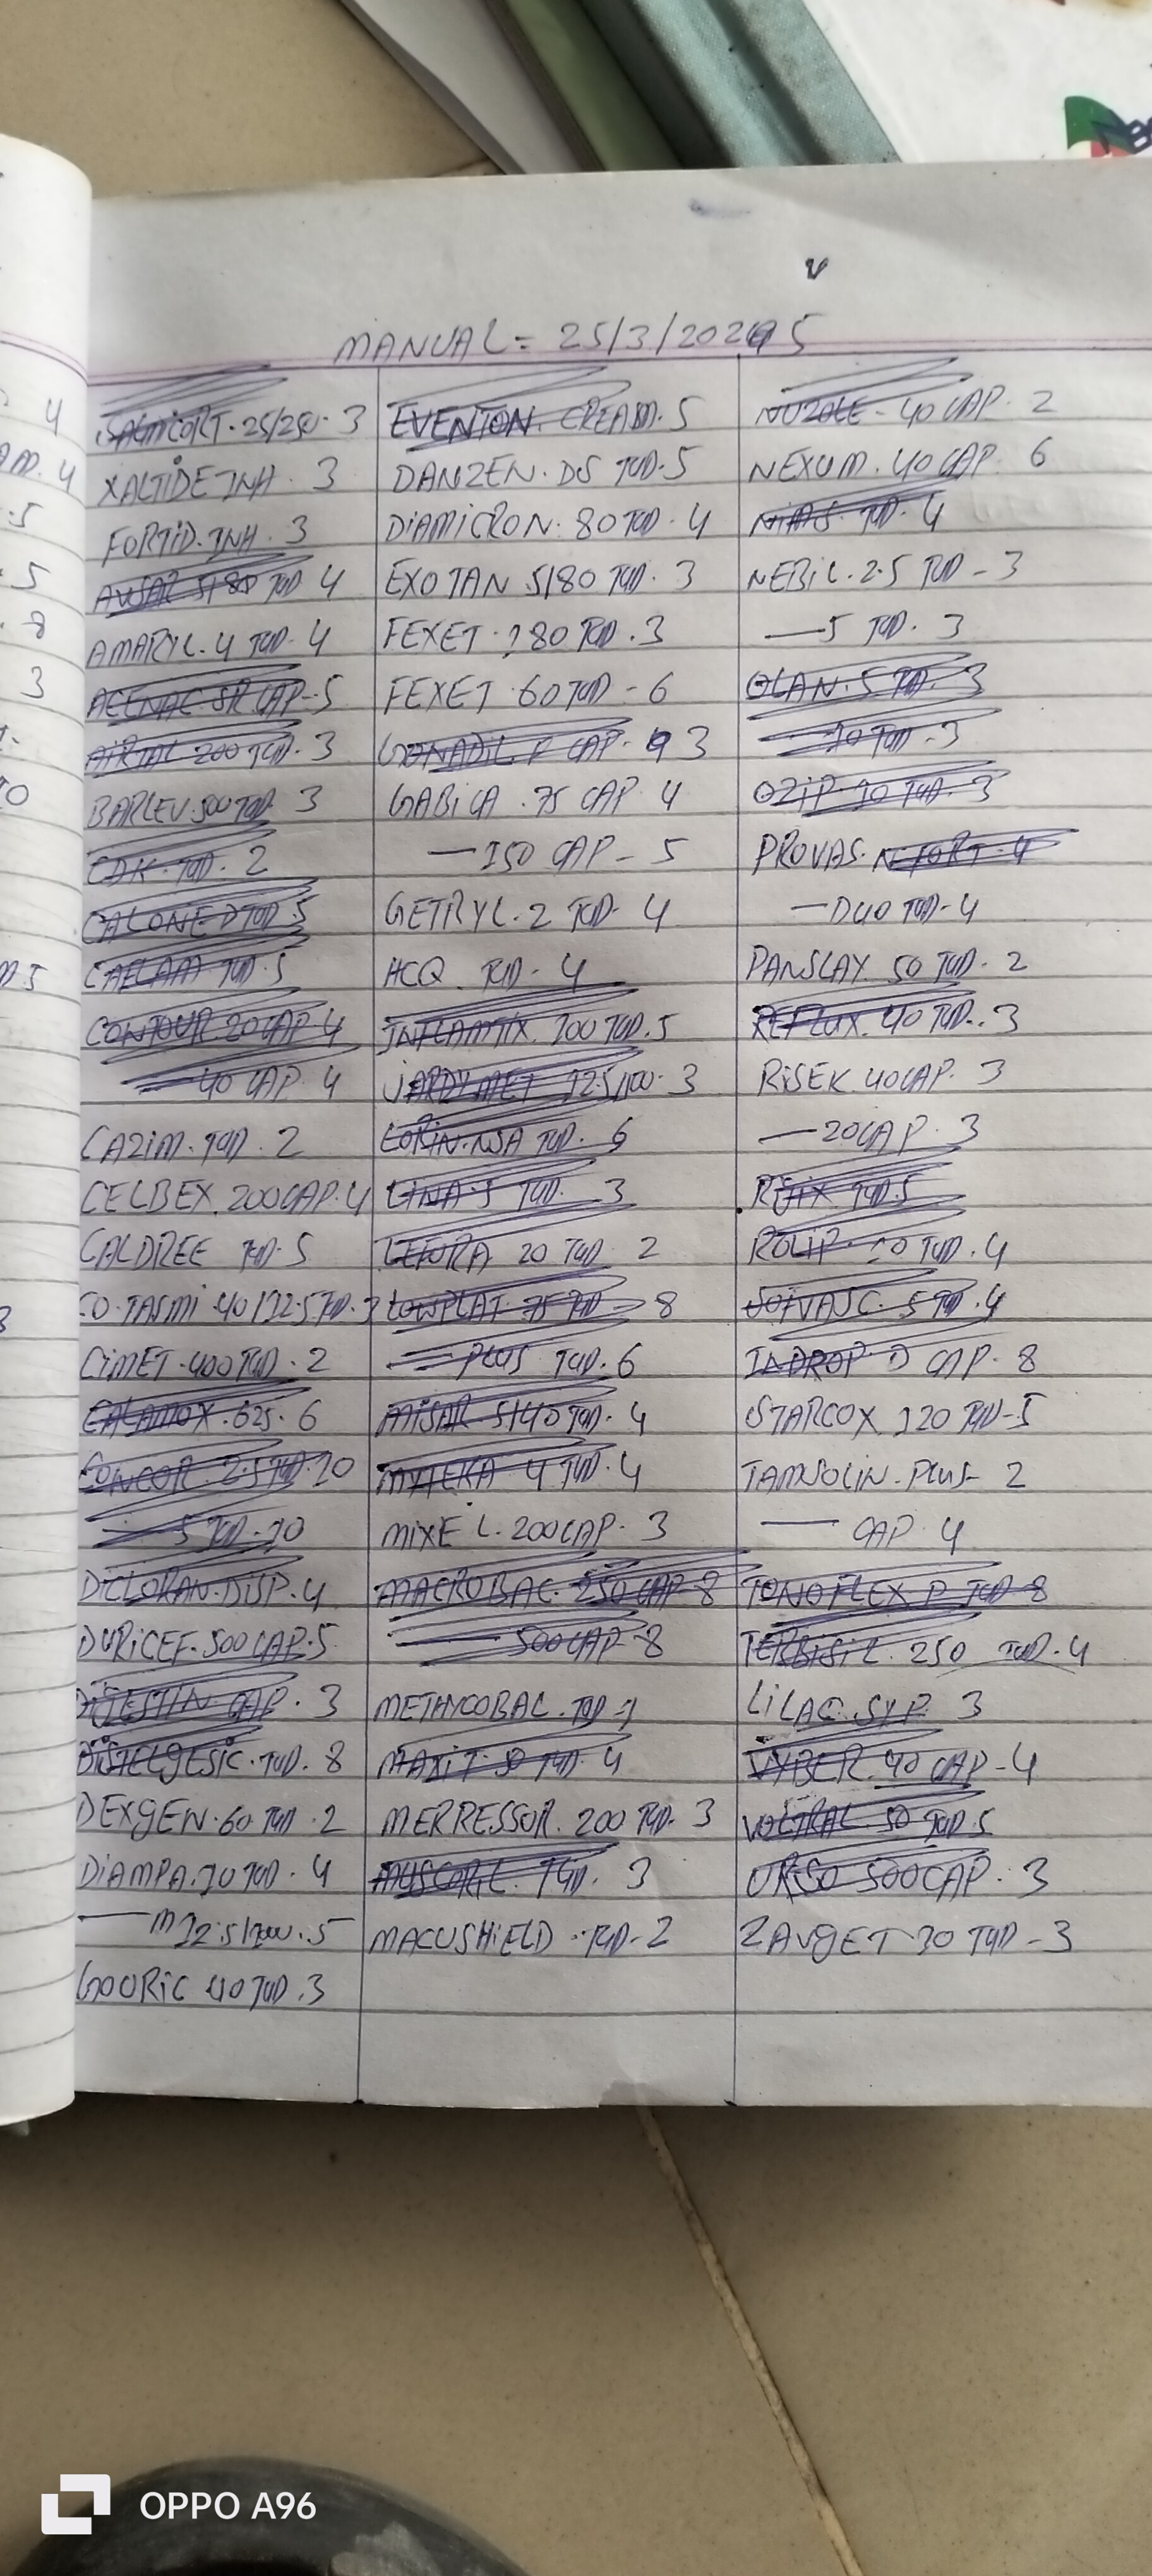 MANUAL = 25/3/2025
SALMICORT. 25/250. 3
XALTIDE INH. 3
FORTID. INH. 3
AVSAR 5/80 TAD 4
AMARYL. 4 TAD. 4
ACENAC SR CAP-5
AIRTAL 200 TAD. 3
BARLEV. 500 TAD. 3
CDK. TAD. 2
CALONE D TAD. 5
CAFLAM TAD. 5
CONTOUR 20 CAP 4
— 40 CAP. 4
CAZIM. TAD. 2
CELBEX. 200 CAP. 4
CALDREE TAD. 5
CO. TASMI. 40/12.5 TAD. 3
CIMET. 400 TAD. 2
CALAMOX. 625. 6
CONCOR. 2.5 TAD. 10
— 5 TAD. 10
DICLORAN. DISP. 4
DURICEF. 500 CAP. 5
DIJESTIN CAP. 3
DISTELGESIC. TAD. 8
DEXGEN. 60 TAD. 2
DIAMPA. 10 TAD. 4
— M 12.5/1000. 5
GOURIC 40 TAD. 3
EVENTON. CREAM. 5
DANZEN. DS TAD. 5
DIAMICRON. 80 TAD. 4
EXOTAN 5/80 TAD. 3
FEXET. 180 TAD. 3
FEXET 60 TAD - 6
GANADIL. F CAP. 3
GABICA. 75 CAP. 4
— 150 CAP - 5
GETRYL. 2 TAD. 4
HCQ. TAD. 4
INFLAMTIX. 100 TAD. 5
JARDYMET 12.5/1000. 3
LORIN. NSA TAD. 6
LINA 5 TAD. 3
LEFORA 20 TAD 2
LOWPLAT 75 TAD 8
— PLUS TAD. 6
MISAR 5/40 TAD. 4
MYTEKA 4 TAD. 4
MIXEL. 200 CAP. 3
MACROBAC. 250 CAP 8
— 500 CAP 8
METHYCOBAL. TAD
MAXIT 50 TAD. 4
MERRESSOR. 200 TAD. 3
MUSCORIL. TAD. 3
MACUSHIELD. TAD. 2
NUZOLE - 40 CAP. 2
NEXUM. 40 CAP. 6
NIMS. TAD. 4
NEBIL. 2.5 TAD - 3
— 5 TAD. 3
OLAN. 5 TAD. 3
— 10 TAD. 3
OZIP 10 TAD. 3
PROVAS. N FORT. 4
— DUO TAD. 4
PANSLAY. 50 TAD. 2
REFLUX. 40 TAD. 3
RISEK 40 CAP. 3
— 20 CAP. 3
RIFIX TAD. 5
ROLIP. 10 TAD. 4
SOFVASC. 5 TAD. 4
INDROP D CAP. 8
STARCOX 120 TAD - 5
TAMSOLIN. PLUS 2
— CAP 4
TONOFLEX P TAD 8
TERBISIL. 250 TAD. 4
LILAC. SYP. 3
VYBER. 40 CAP - 4
VOLTRAL 50 TAD. 5
URSO 500 CAP. 3
ZAVGET 30 TAD - 3
OPPO A96